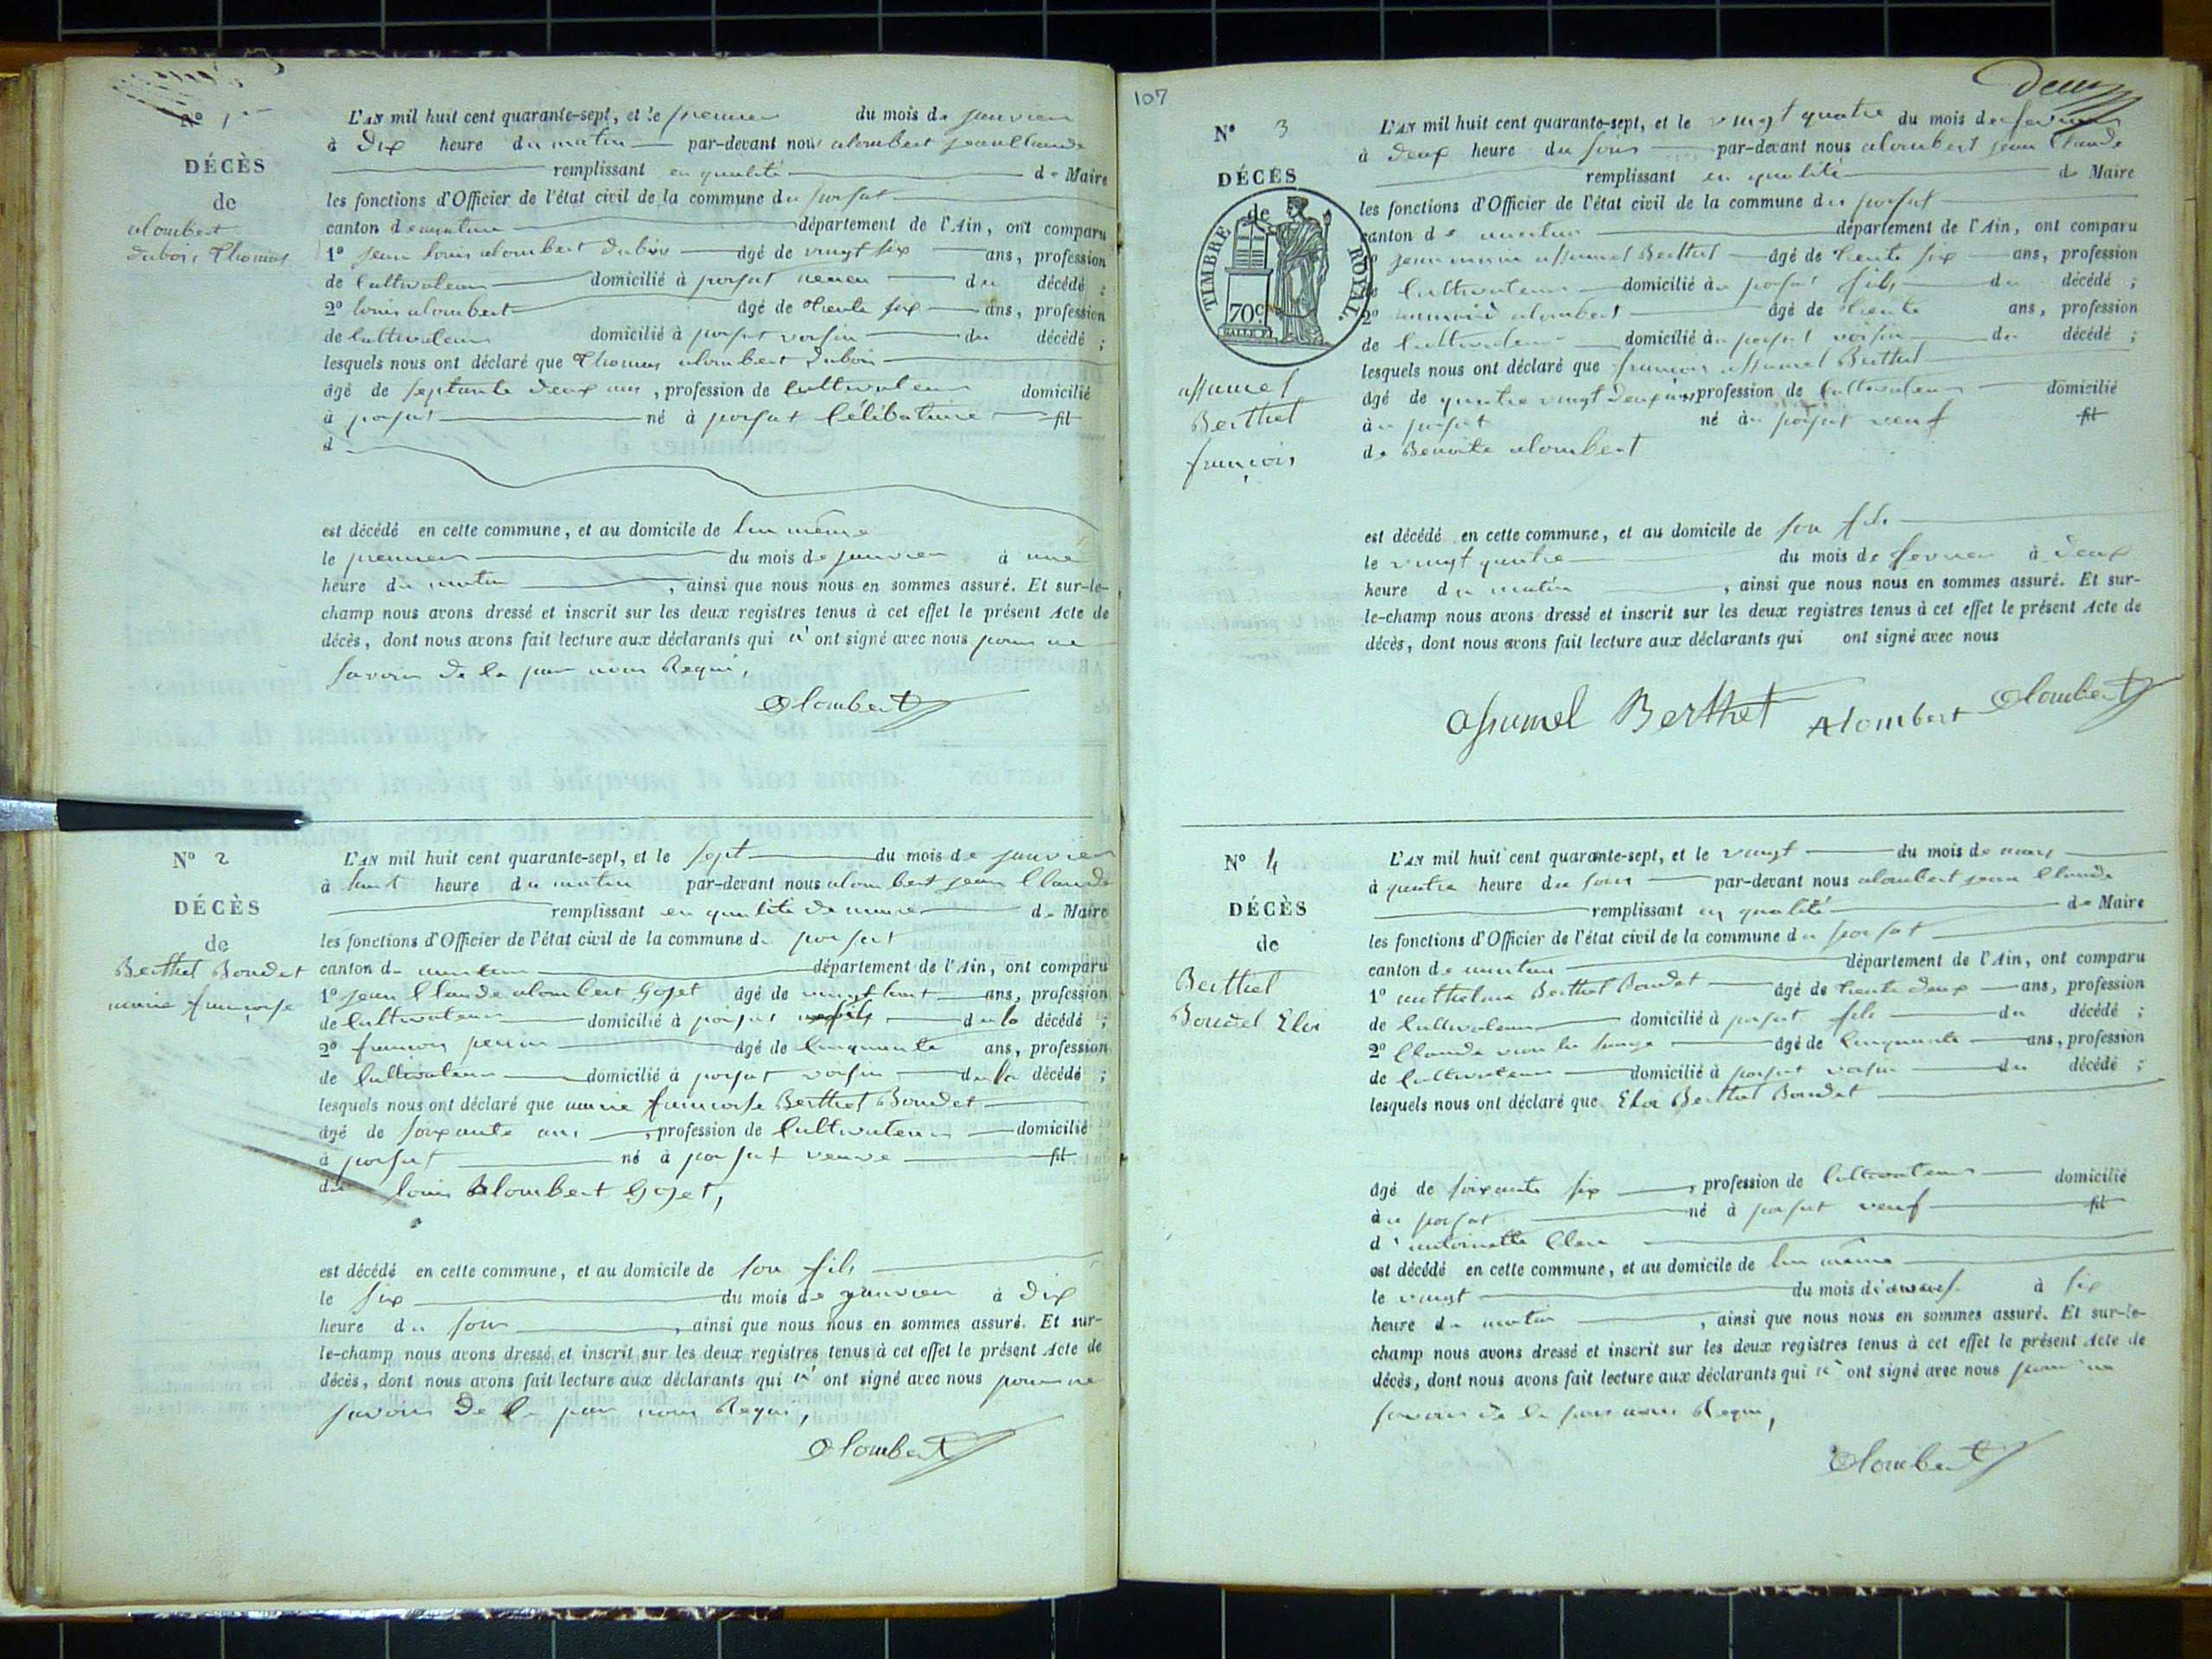 N° 1
DÉCÈS
de
alombert
dubois Thomas
L'AN mil huit cent quarante-sept, et le premier du mois de janvier
à Dix heure du matin par-devant nous alombert jean Claude
remplissant en qualité de Maire
les fonctions d'Officier de l'état civil de la commune du porsat
canton de département de l'Ain, ont comparu
1° jean louis alombert dubois âgé de vingt six ans, profession
de Cultivateur domicilié à porsat neveu du décédé ;
2° louis alombert âgé de trente six ans, profession
de Cultivateur domicilié à porsat voisin du décédé ;
lesquels nous ont déclaré que Thomas alombert dubois
âgé de septante deux ans, profession de Cultivateur domicilié
à porsat né à porsat Célibataire fil
d
est décédé en cette commune, et au domicile de lui même
le premier du mois de janvier à une
heure du matin, ainsi que nous nous en sommes assuré. Et sur-le-
champ nous avons dressé et inscrit sur les deux registres tenus à cet effet le présent Acte de
décès, dont nous avons fait lecture aux déclarants qui n' ont signé avec nous pour ne
savoir de le par nous Requi,
Alombert
N° 2
DÉCÈS
de
Berthet Bondet
marie françoise
L'AN mil huit cent quarante-sept, et le sept du mois de janvier
à huit heure du matin par-devant nous alombert jean Claude
remplissant en qualité de maire de Maire
les fonctions d'Officier de l'état civil de la commune du porsat
canton de département de l'Ain, ont comparu
1° jean Claude alombert Gojet âgé de vingt huit ans, profession
de Cultivateur domicilié à porsat fils du la décédé ;
2° françois perrin âgé de Cinquante ans, profession
de Cultivateur domicilié à porsat voisin du la décédé ;
lesquels nous ont déclaré que marie françoise Berthet Bondet
âgé de soixante ans, profession de Cultivateur domicilié
à porsat né à porsat veuve fil
du louis Alombert Gojet,
est décédé en cette commune, et au domicile de son fils
le six du mois de janvier à dix
heure du soir, ainsi que nous nous en sommes assuré. Et sur-
le-champ nous avons dressé et inscrit sur les deux registres tenus à cet effet le présent Acte de
décès, dont nous avons fait lecture aux déclarants qui n' ont signé avec nous pour ne
savoir de le par nous Requi,
Alombert
107
deux
N° 3
DÉCÈS
de
TIMBRE ROYAL.
70c
assumel
Berthet
françois
L'AN mil huit cent quarante-sept, et le vingt quatre du mois de fevrier
à deux heure du soir par-devant nous alombert jean Claude
remplissant en qualité de Maire
les fonctions d'Officier de l'état civil de la commune du porsat
canton de département de l'Ain, ont comparu
jean marie assumel Berthet âgé de trente six ans, profession
Cultivateur domicilié au porsat fils du décédé ;
2° alombert âgé de trente ans, profession
de Cultivateur domicilié au porsat voisin du décédé ;
lesquels nous ont déclaré que françois assumel Berthet
âgé de quatre vingt deux ans, profession de Cultivateur domicilié
au porsat né au porsat veuf fil
de Benoite alombert
est décédé en cette commune, et au domicile de son fils
le vingt quatre du mois de fevrier à deux
heure du matin, ainsi que nous nous en sommes assuré. Et sur-
le-champ nous avons dressé et inscrit sur les deux registres tenus à cet effet le présent Acte de
décès, dont nous avons fait lecture aux déclarants qui ont signé avec nous
assumel Berthet Alombert Alombert
N° 4
DÉCÈS
de
Berthet
Bondet Eloi
L'AN mil huit cent quarante-sept, et le vingt du mois de mars
à quatre heure du soir par-devant nous alombert jean Claude
remplissant en qualité de Maire
les fonctions d'Officier de l'état civil de la commune du porsat
canton de département de l'Ain, ont comparu
1° anthelme Berthet Bondet âgé de trente deux ans, profession
de Cultivateur domicilié à porsat fils du décédé ;
2° Claude âgé de Cinquante ans, profession
de Cultivateur domicilié à porsat voisin du décédé ;
lesquels nous ont déclaré que Eloi Berthet Bondet
âgé de soixante six, profession de Cultivateur domicilié
au porsat né à porsat veuf fil
d'antoinette
est décédé en cette commune, et au domicile de lui même
le vingt du mois de mars à six
heure du matin, ainsi que nous nous en sommes assuré. Et sur-le-
champ nous avons dressé et inscrit sur les deux registres tenus à cet effet le présent Acte de
décès, dont nous avons fait lecture aux déclarants qui n' ont signé avec nous pour ne
savoir de le par nous Requi,
Alombert